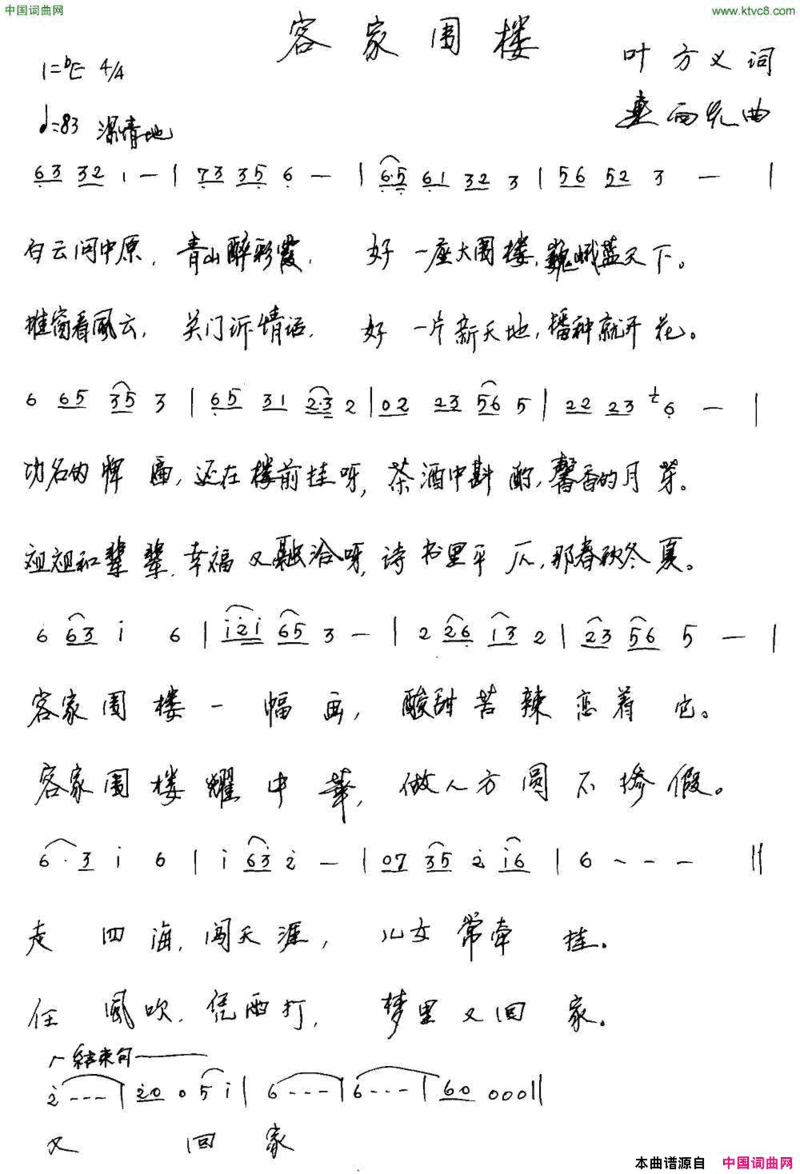 中国词曲网
www.ktvc8.com
客家围楼
1=bE 4/4
叶方义词
雨先曲
♩=83 深情地
63 32 1 — | 73 35 6 — | 6·5 61 32 3 | 56 52 3 — |
白云闯中原，青山醉彩霞， 好一座大围楼，巍峨蓝天下。
推窗看风云，关门诉情话， 好一片新天地，播种就开花。
6 65 35 3 | 65 31 2·3 2 | 02 23 56 5 | 22 23 6 — |
功名的牌匾，还在楼前挂呀，茶酒中斟酌，馨香的月芽。
祖祖和辈辈，幸福又融洽呀，诗书里平仄，那春秋冬夏。
6 63 i 6 | i2i 65 3 — | 2 26 13 2 | 23 56 5 — |
客家围楼一幅画，酸甜苦辣恋着它。
客家围楼耀中华，做人方圆不掺假。
6·3 i 6 | i 63 2 — | 07 35 2 i6 | 6 - - - ||
走四海，闯天涯，儿女常牵挂。
任风吹，凭雨打，梦里又回家。
结束句
2 - - - | 20 0 5 i | 6 - - - | 6 - - - | 60 000 ||
又回家
本曲谱源自 中国词曲网